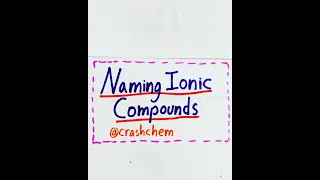 Naming Ionic
Compounds
@crashchem